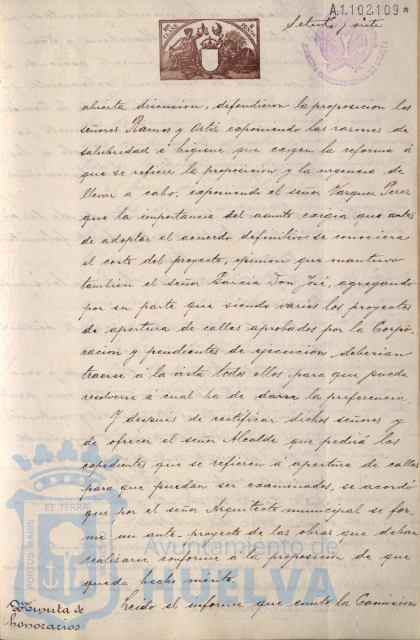 A.1.102.109*
Setenta y siete
abierta discusion, defendieron la proposicion los
señores Ramos y Ortiz exponiendo las razones de
salubridad é higiene que exigen la reforma á
que se refiere la proposicion y la urgencia de
llevar a cabo, exponiendo el señor Vazquez Perez
que la importancia del asunto exigia que antes
de adoptar el acuerdo definitivo se conociera
el costo del proyecto, opinion que mantuvo
tambien el señor Garcia Don José, agregando
por su parte que siendo varios los proyectos
de apertura de calles aprobados por la Corpo-
racion y pendientes de ejecucion, deberian
traerse á la vista todos ellos para que pueda
resolverse á cual ha de darse la preferencia.
Y despues de rectificar dichos señores y
de ofrecer el señor Alcalde que pedirá los
expedientes que se refieren á apertura de calles
para que puedan ser examinados, se acordó
que por el señor Arquitecto municipal se for-
me un ante-proyecto de las obras que deban
realizarse conforme á la proposicion de que
queda hecho mérito.
Minuta de
honorarios
Leido el informe que emite la Comision
PORTUS MARIS
ET TERRÆ
Ayuntamiento de
HUELVA